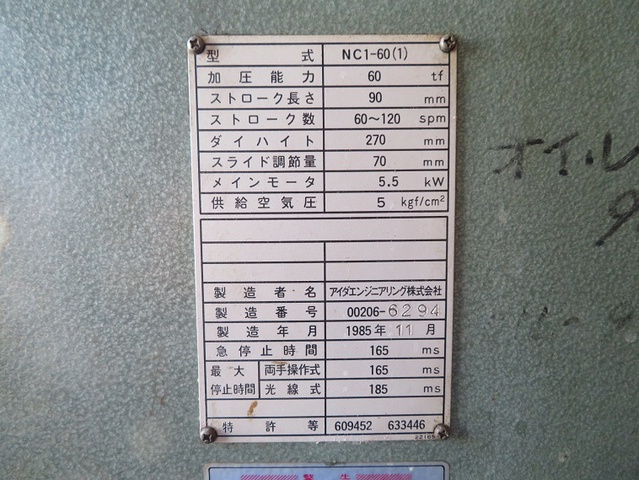 型式 NC1-60(1)
加圧能力 60 tf
ストローク長さ 90 mm
ストローク数 60〜120 spm
ダイハイト 270 mm
スライド調節量 70 mm
メインモータ 5.5 kW
供給空気圧 5 kgf/cm²
製造者名 アイダエンジニアリング株式会社
製造番号 00206-6294
製造年月 1985年 11月
急停止時間 165 ms
最大停止時間 両手操作式 165 ms
光線式 185 ms
特許等 609452 633446
オイル
9
警告